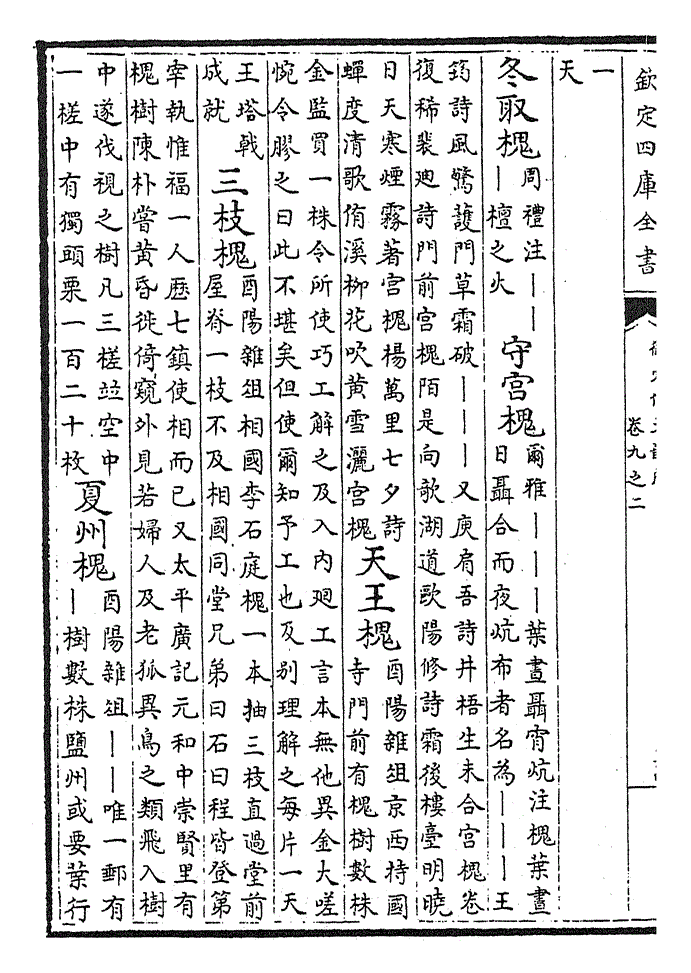 欽定四庫全書
卷九之二
一
天
冬取槐
周禮注｜｜
｜檀之火
守宮槐
爾雅｜｜｜葉晝聶宵炕注槐葉晝
日聶合而夜炕布者名為｜｜｜王
筠詩風驚護門草霜破｜｜｜又庾肩吾詩井梧生未合宮槐卷
復稀裴廸詩門前宮槐陌是向欹湖道歐陽修詩霜後樓臺明曉
日天寒煙霧著宮槐楊萬里七夕詩
蟬度清歌侑溪柳花吹黄雪灑宮槐
天王槐
酉陽雜俎京西持國
寺門前有槐樹數株
金監買一株令所使巧工解之及入内廻工言本無他異金大嗟
惋令膠之曰此不堪矣但使爾知予工也及别理解之每片一天
王塔戟
成就
三枝槐
酉陽雜俎相國李石庭槐一本抽三枝直過堂前
屋脊一枝不及相國同堂兄弟曰石曰程皆登第
宰執惟福一人歴七鎮使相而已又太平廣記元和中崇賢里有
槐樹陳朴嘗黄昏徙倚窺外見若婦人及老狐異鳥之類飛入樹
中遂伐視之樹凡三槎竝空中
一槎中有獨頭栗一百二十枚
夏州槐
酉陽雜俎｜｜唯一郵有
｜樹數株鹽州或要葉行